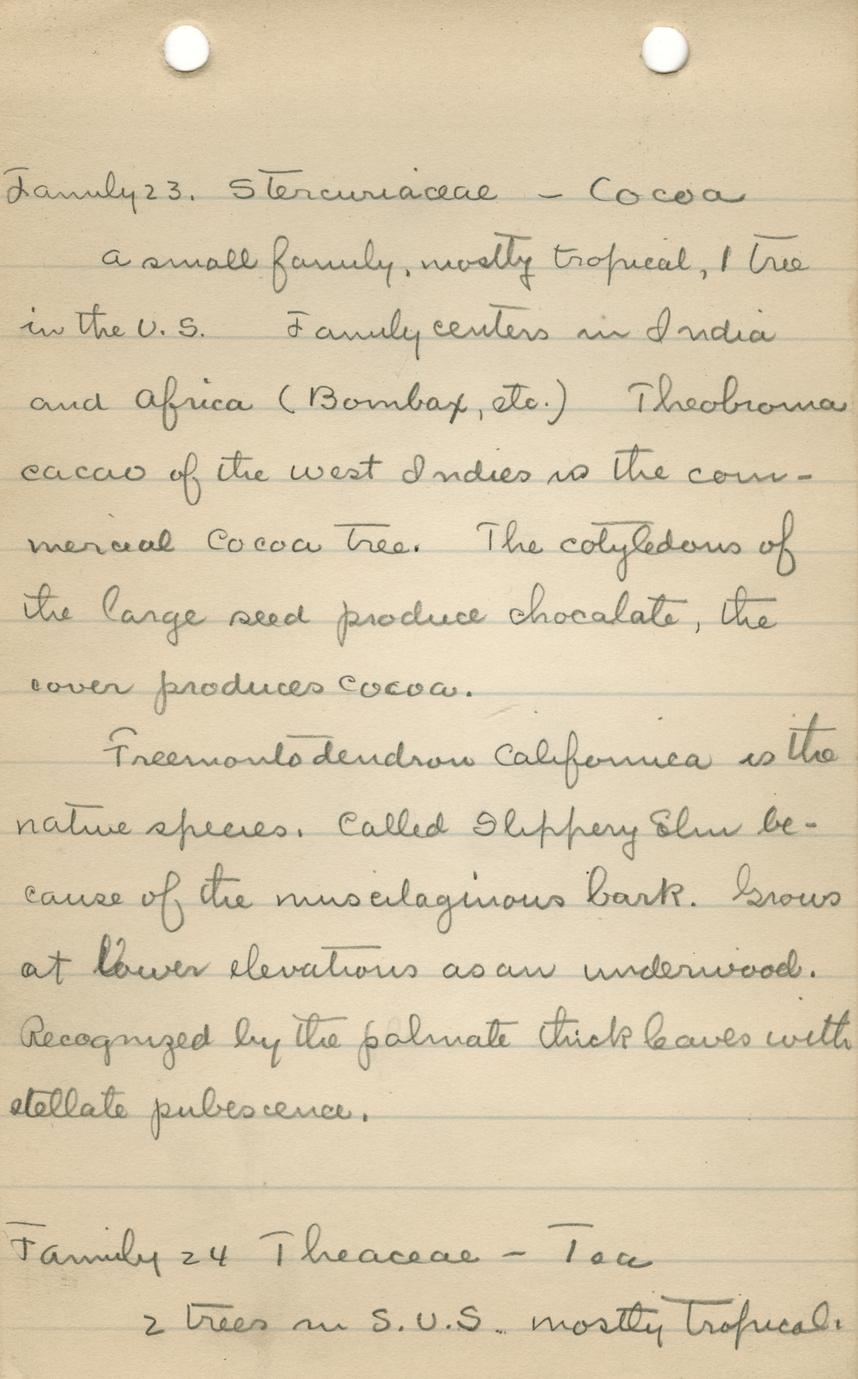 Family 23. Stercuriaceae - Cocoa
a small family, mostly tropical, 1 tree
in the U.S. Family centers in India
and Africa (Bombax, etc.) Theobroma
cacao of the west Indies is the com-
mercial Cocoa tree. The cotyledons of
the large seed produce chocalate, the
cover produces cocoa.
Freemontodendron Californica is the
native species. Called Slippery Elm be-
cause of the muscilaginous bark. Grows
at lower elevations as an underwood.
Recognized by the palmate thick leaves with
stellate pubescence.
Family 24 Theaceae - Tea
2 trees in S.U.S. mostly tropical.